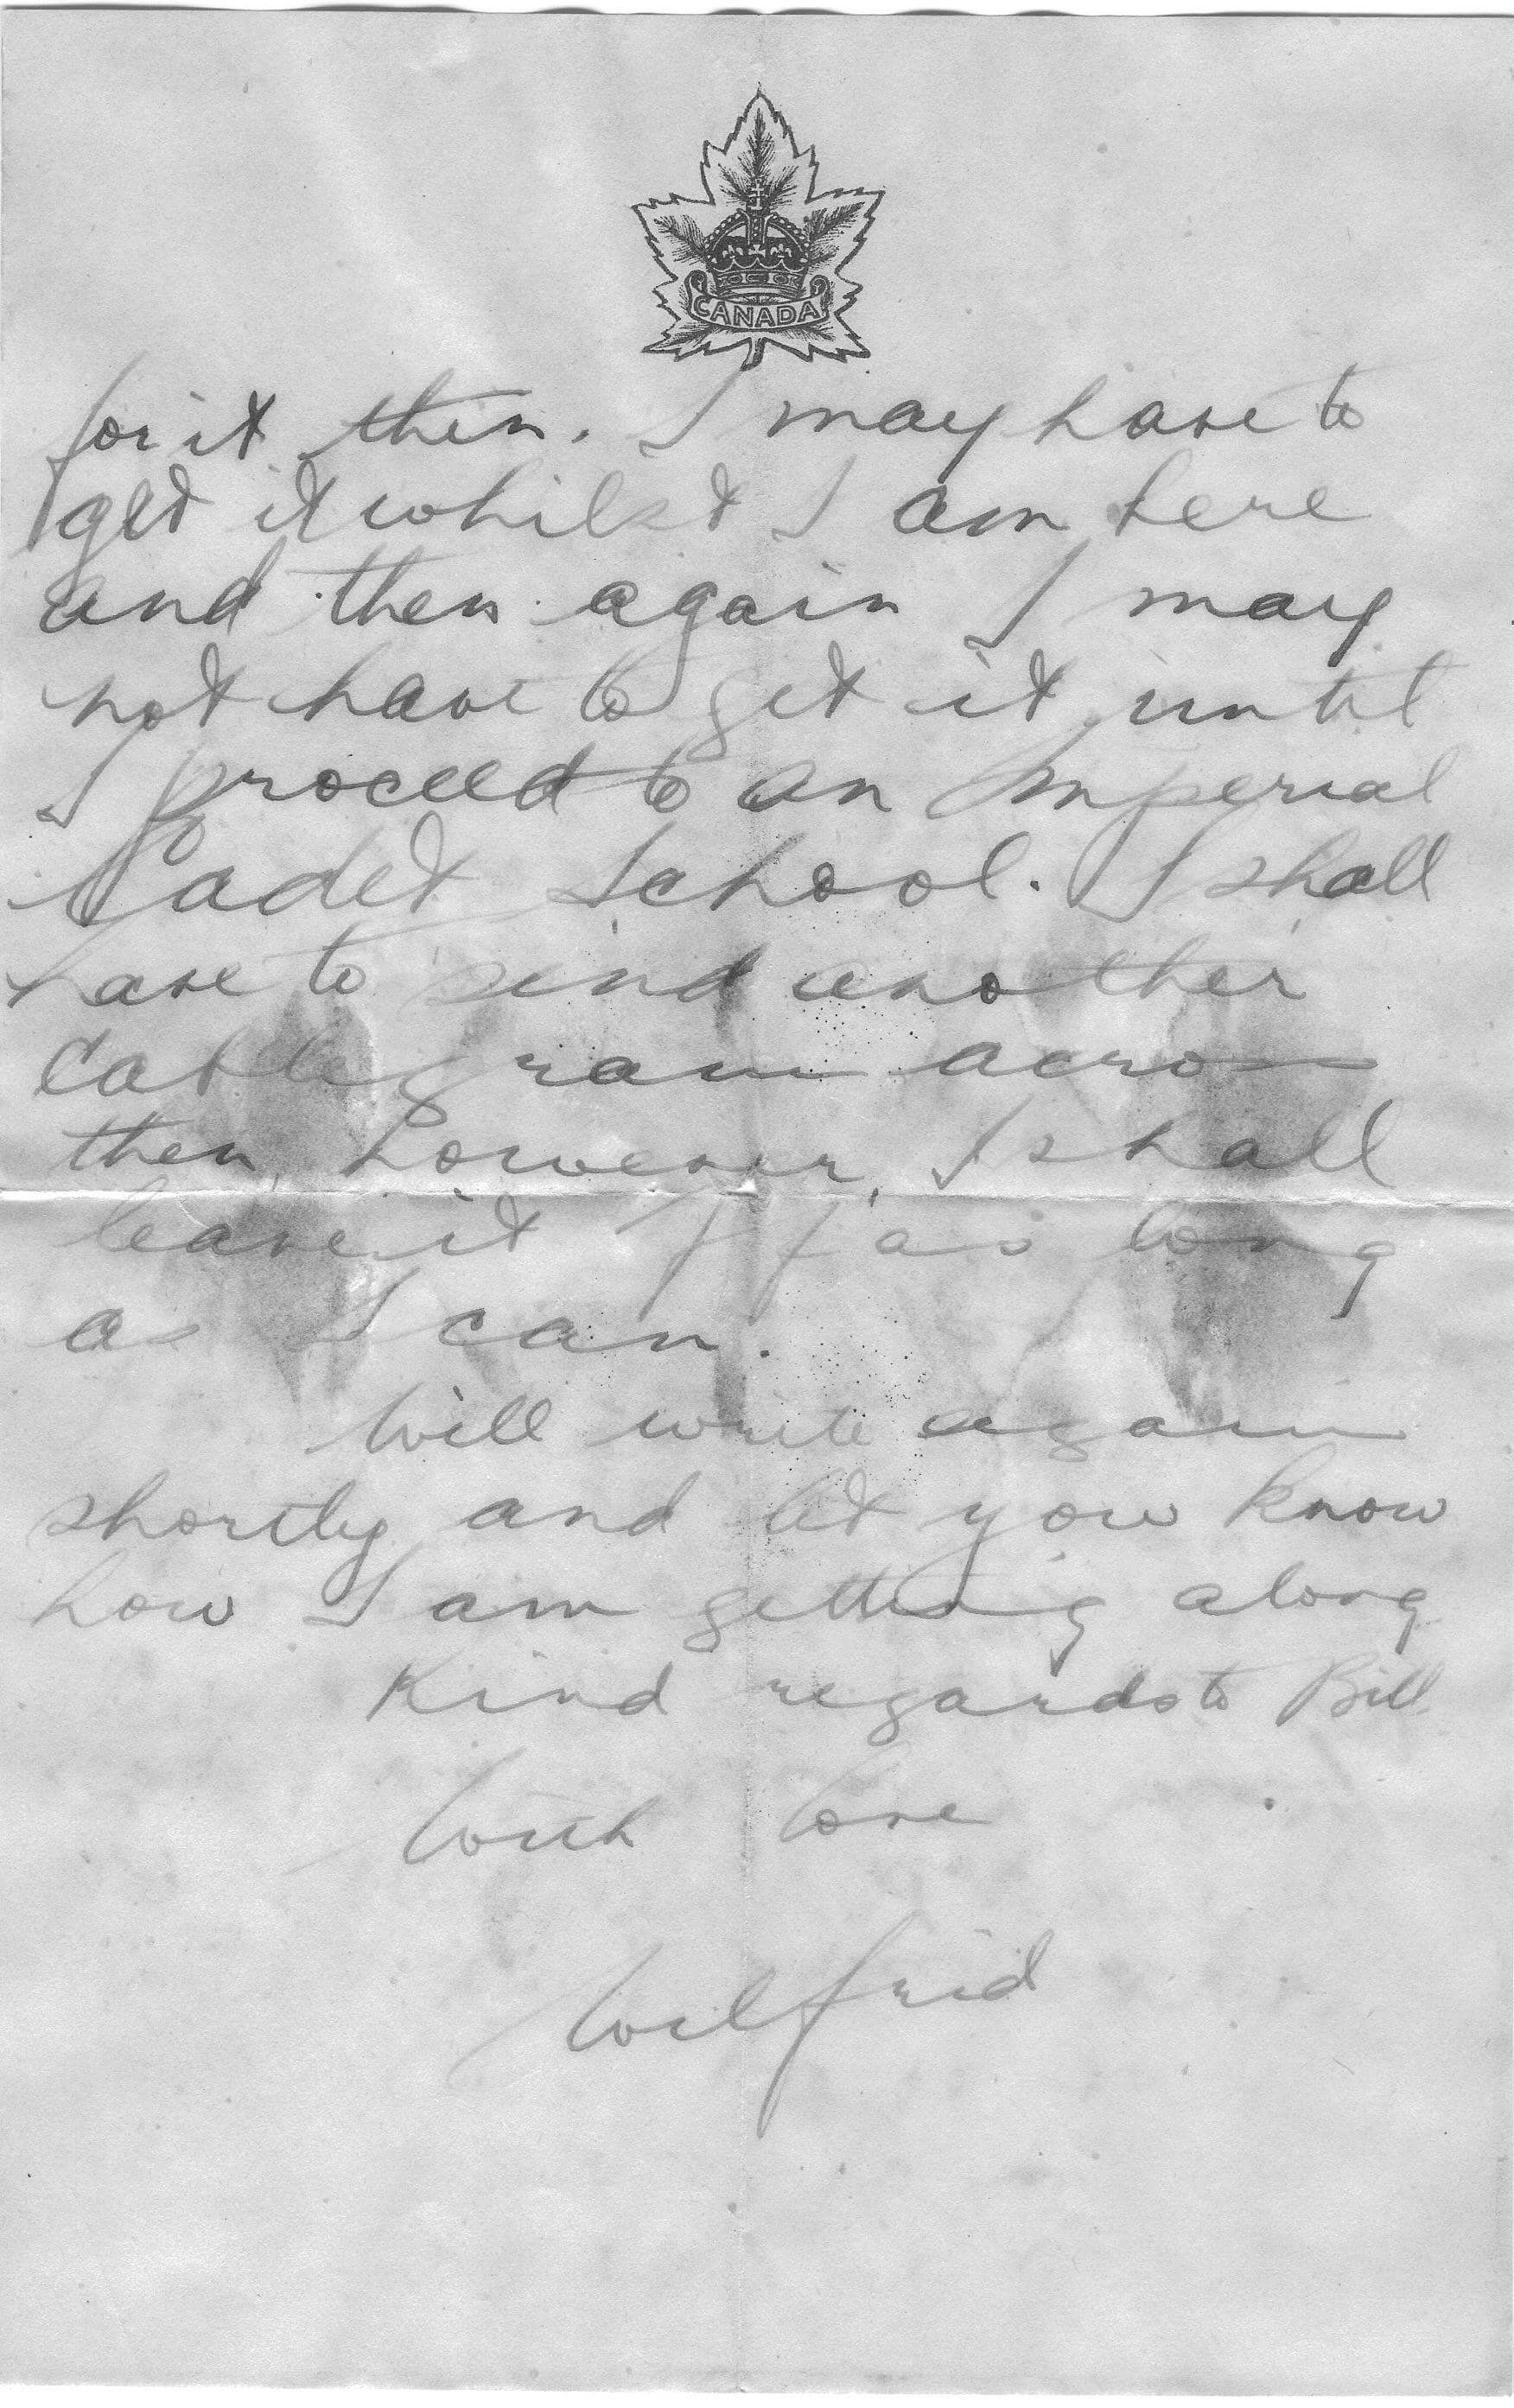 CANADA
for it then. I may have to
get it whilst I am here
and then again I may
not have to get it until
I proceed to an Imperial
Cadet School. I shall
have to send another
Cablegram across
then, however, I shall
leave it off as long
as I can.
Will write again
shortly and let you know
how I am getting along
Kind regards to Bill.
With love
Wilfrid